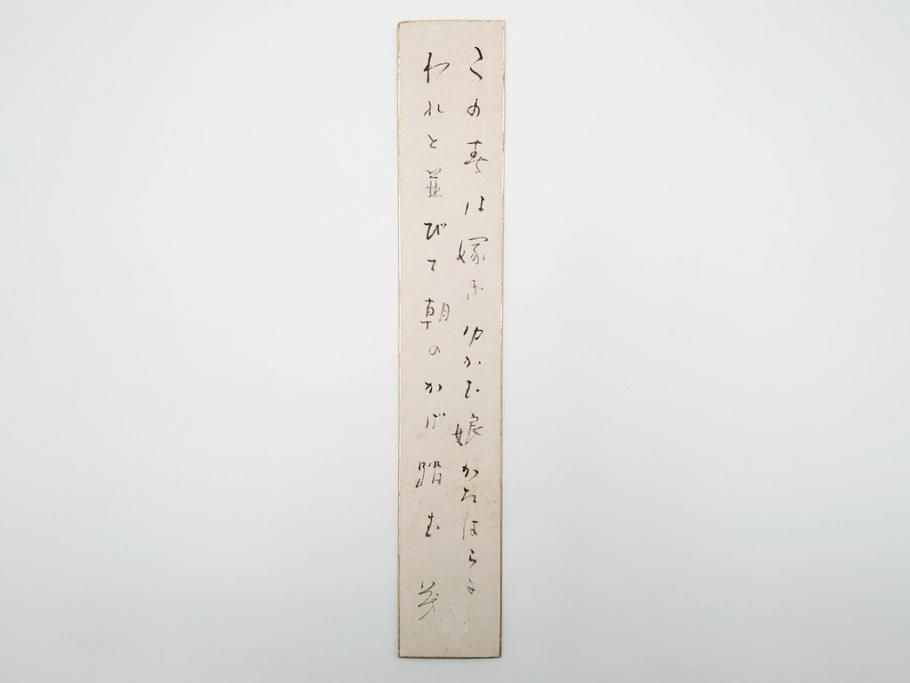 この春は嫁きゆかむ娘かたはらに
われと並びて朝のかげ踏む 茂